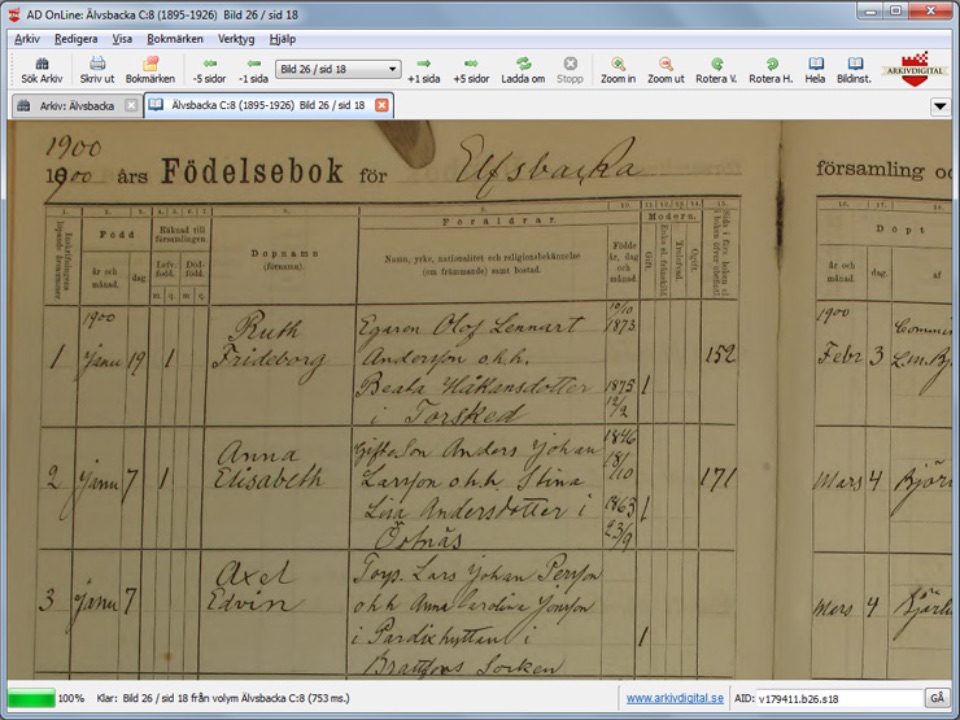 AD OnLine: Älvsbacka C:8 (1895-1926) Bild 26 / sid 18
Arkiv Redigera Visa Bokmärken Verktyg Hjälp
Sök Arkiv Skriv ut Bokmärken -5 sidor -1 sida Bild 26 / sid 18 +1 sida +5 sidor Ladda om Stopp Zoom in Zoom ut Rotera V. Rotera H. Hela Bildinst. ARKIVDIGITAL
Arkiv: Älvsbacka Älvsbacka C:8 (1895-1926) Bild 26 / sid 18
1900
1900 års Födelsebok för Elfsbacka församling oc
1. 2. 3. 4. 5. 6. 7. 8. 9. 10. 11. 12. 13. 14. 15. 16. 17. 18.
Inskrifningens löpande årsnummer
Född
år och månad.
dag.
Räknad till församlingen.
Lefv. född.
Död-född.
m q. m q.
Dopnamn
(förnamn).
Föräldrar.
Namn, yrke, nationalitet och religionsbekännelse
(om främmande) samt bostad.
Födde år, dag och månad
Modern.
Gift.
Enka el. frånskild
Trolofvad.
Ogift.
Döpt
år och månad.
dag.
af
1900 Ruth Egaren Olof Lennart 19/10 1873 1900
1 Janu 19 1 Frideborg Andersson o.h.h. 152 Febr 3
Beata Håkansdotter 1875 1
i Torsked 12/2
Anna Anders Johan 1846
2 Janu 7 1 Elisabeth Larsson o.h.h. Stina 18/10 171 Mars 4
Lisa Andersdotter i 1863 1
Östnäs 23/9
Axel Torp. Lars Johan Persson
3 Janu 7 Edvin o.h.h Anna Carolina Jonsson Mars 4
i Pardixhyttan i 1
Brattfors Socken
100% Klar: Bild 26 / sid 18 från volym Älvsbacka C:8 (753 ms.) www.arkivdigital.se AID: v179411.b26.s18 GÅ